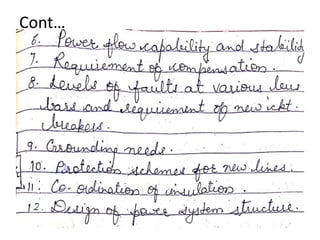 Cont...
6. Power flow capability and stability
7. Requirement of compensation.
8. Levels of faults at various bus
bars and requirement of new ckt.
breakers.
9. Grounding needs.
10. Protection schemes for new lines.
11. Co-ordination of insulation.
12. Design of power system structure.